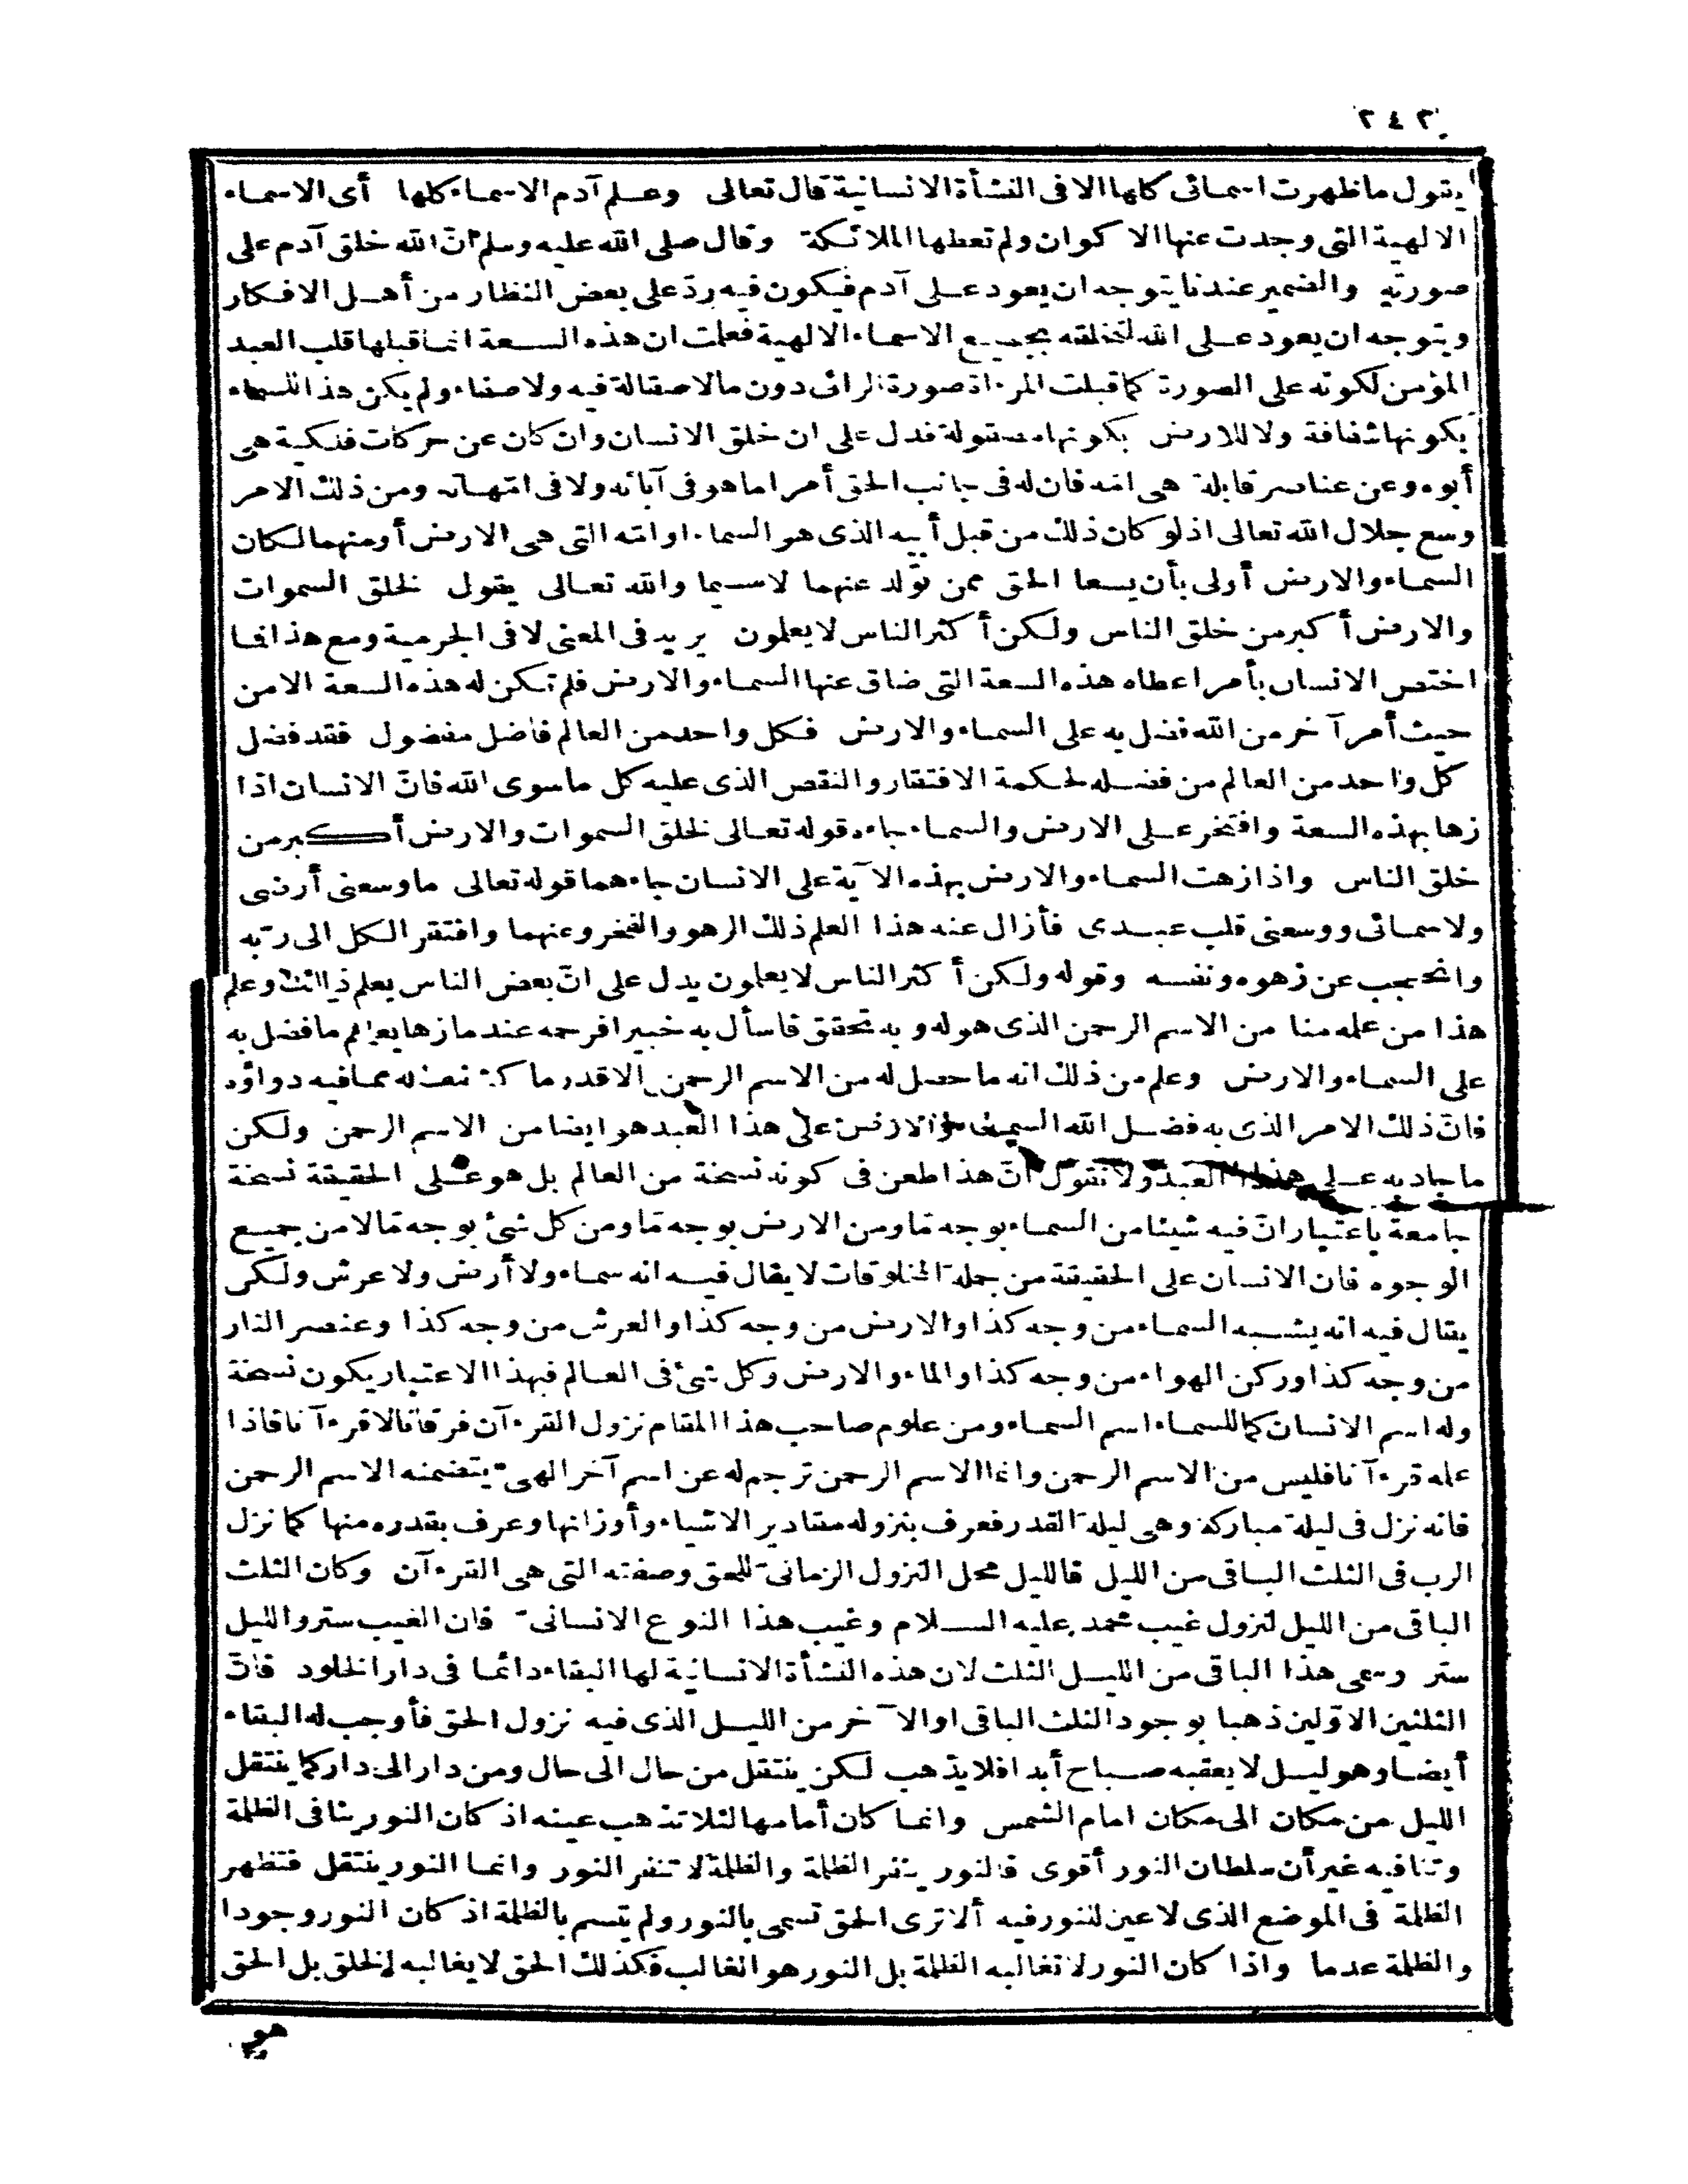 ٢٤٢
يقول ما ظهرت اسمائى كلها الا فى النشأة الانسانية قال تعالى وعلم آدم الاسماء كلها أى الاسماء
الالهية التى وجدت عنها الاكوان ولم تعطها الملائكة وقال صلى الله عليه وسلم انّ الله خلق آدم على
صورته والضمير عندنا يتوجه ان يعود على آدم فيكون فيه ردّ على بعض النظار من أهل الافكار
ويتوجه ان يعود على الله لتخلقه بجميع الاسماء الالهية فعلمت ان هذه السعة انما قبلها قلب العبد
المؤمن لكونه على الصورة كما قبلت المرءاة صورة الرائى دون ما لا صقالة فيه ولا صفاء ولم يكن هذا للسماء
بكونها شفافة ولا للارض بكونها مصقولة فدل على ان خلق الانسان وان كان عن حركات فلكية هى
أبوه وعن عناصر قابلة هى امّه فان له فى جانب الحق أمرا ما هو فى آبائه ولا فى امّهاته ومن ذلك الامر
وسع جلال الله تعالى اذ لو كان ذلك من قبل أبيه الذى هو السماء او امّه التى هى الارض أو منهما لكان
السماء والارض أولى بأن يسعا الحق ممن تولّد عنهما لا سيما والله تعالى يقول لخلق السموات
والارض أكبر من خلق الناس ولكن أكثر الناس لا يعلمون يريد فى المعنى لا فى الجرمية ومع هذا انما
اختص الانسان بأمر اعطاه هذه السعة التى ضاق عنها السماء والارض فلم تكن له هذه السعة الا من
حيث أمر آخر من الله فضل به على السماء والارض فكل واحد من العالم فاضل مفضول فقد فضل
كل واحد من العالم من فضله لحكمة الافتقار والنقص الذى عليه كل ما سوى الله فانّ الانسان اذا
زها بهذه السعة وافتخر على الارض والسماء جاءه قوله تعالى لخلق السموات والارض أكبر من
خلق الناس واذا زهت السماء والارض بهذه الآية على الانسان جاءهما قوله تعالى ما وسعنى أرضى
ولا سمائى ووسعنى قلب عبدى فأزال عنه هذا العلم ذلك الزهو والفخر وعنهما وافتقر الكل الى ربّه
وانحجب عن زهوه ونفسه وقوله ولكن أكثر الناس لا يعلمون يدل على انّ بعض الناس يعلم ذلك وعلم
هذا من علمه منا من الاسم الرحمن الذى هو له وبه تحقق فاسأل به خبيرا فرحمه عند ما زها بعلم ما فضل به
على السماء والارض وعلم من ذلك انه ما حصل له من الاسم الرحمن الا قدر ما كشف له مما فيه دواؤه
فانّ ذلك الامر الذى به فضل الله السماء والارض على هذا العبد هو ايضا من الاسم الرحمن ولكن
ما جاد به على هذا العبد ولا تقول انّ هذا طعن فى كونه نسخة من العالم بل هو على الحقيقة نسخة
جامعة باعتبار انّ فيه شيئا من السماء بوجه مّا ومن الارض بوجه مّا ومن كل شئ بوجه مّا لا من جميع
الوجوه فان الانسان على الحقيقة من جملة المخلوقات لا يقال فيه انه سماء ولا أرض ولا عرش ولكن
يقال فيه انه يشبه السماء من وجه كذا والارض من وجه كذا والعرش من وجه كذا وعنصر النار
من وجه كذا وركن الهواء من وجه كذا والماء والارض وكل شئ فى العالم فبهذا الاعتبار يكون نسخة
وله اسم الانسان كما للسماء اسم السماء ومن علوم صاحب هذا المقام نزول القرءآن فرقانا لا قرءآنا فاذا
علمه قرءآنا فليس من الاسم الرحمن وانما الاسم الرحمن ترجم له عن اسم آخر الهىّ يتضمنه الاسم الرحمن
فانه نزل فى ليلة مباركة وهى ليلة القدر فعرف بنزوله مقادير الاشياء وأوزانها وعرف بقدره منها كما نزل
الرب فى الثلث الباقى من الليل فالليل محل النزول الزمانىّ للحق وصفته التى هى القرءآن وكان الثلث
الباقى من الليل لنزول غيب محمد عليه السلام وغيب هذا النوع الانسانىّ فان الغيب ستر والليل
ستر وسمى هذا الباقى من الليل الثلث لان هذه النشأة الانسانية لها البقاء دائما فى دار الخلود فانّ
الثلثين الاوّلين ذهبا بوجود الثلث الباقى او الآخر من الليل الذى فيه نزول الحق فأوجب له البقاء
أيضا وهو ليل لا يعقبه صباح أبدا فلا يذهب لكن ينتقل من حال الى حال ومن دار الى دار كما ينتقل
الليل من مكان الى مكان امام الشمس وانما كان أمامها لئلا تذهب عينه اذ كان النور ينافى الظلمة
وتنافيه غير أن سلطان النور أقوى فالنور ينفر الظلمة والظلمة لا تنفر النور وانما النور ينتقل فتظهر
الظلمة فى الموضع الذى لا عين للنور فيه ألا ترى الحق تسمى بالنور ولم يتسم بالظلمة اذ كان النور وجودا
والظلمة عدما واذا كان النور لا تغالبه الظلمة بل النور هو الغالب فكذلك الحق لا يغالبه الخلق بل الحق
هو